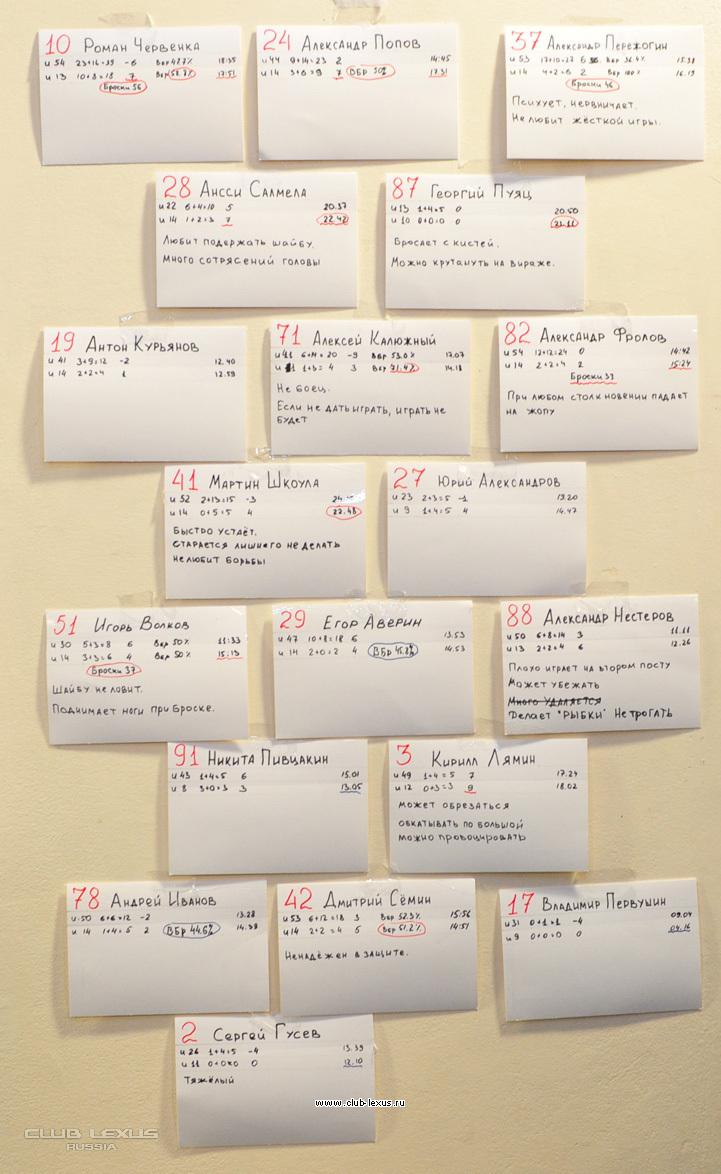 10 Роман Червенка
и 54 23+16=39 -6 Вбр 47.7% 18:35
и 13 10+8=18 7 Вбр 18:51
Броски 56
24 Александр Попов
и 44 9+14=23 2 14:45
и 14 3+6=9 7 ВБР 50% 17.31
37 Александр Пережогин
и 53 17+10=27 Вбр 36.4% 15.38
и 14 4+2=6 2 Вбр 100% 16.19
Броски 46
Психует, нервничает.
Не любит жёсткой игры.
28 Ансси Салмела
и 22 6+4=10 5 20.37
и 14 1+2=3 7 22.42
Любит подержать шайбу.
Много сотрясений головы
87 Георгий Пуяц
и 13 1+4=5 0 20.50
и 10 0+0=0 0 21.11
Бросает с кистей.
Можно крутануть на вираже.
19 Антон Курьянов
и 41 3+9=12 -2 12.40
и 14 2+2=4 1 12.59
71 Алексей Калюжный
и 41 6+14=20 -9 Вбр 53.0% 17.07
и 1+3=4 3 Вбр 71.4% 14.18
Не боец.
Если не дать играть, играть не
будет
82 Александр Фролов
и 54 12+12=24 0 14:42
и 14 2+2=4 2 15:24
Броски 33
При любом столкновении падает
на жопу
41 Мартин Шкоула
и 52 2+13=15 -3
и 14 0+5=5 4 22.48
Быстро устаёт.
старается лишнего не делать
не любит борьбы
27 Юрий Александров
и 23 2+3=5 -1 13.20
и 9 1+4=5 4 14.47
51 Игорь Волков
и 30 5+3=8 6 Вбр 50% 11:33
и 14 3+3=6 4 Вбр 50% 15:13
Броски 37
Шайбу не ловит.
Поднимает ноги при броске.
29 Егор Аверин
и 47 10+8=18 6 13.53
и 14 2+0=2 4 ВБр 45.8% 14.53
88 Александр Нестеров
и 50 6+8=14 3 11.11
и 13 2+2=4 6 12.26
Плохо играет на втором посту
Может убежать
Много удаляется
Делает "рыбки" Не трогать
91 Никита Пивцакин
и 43 1+4=5 6 15.01
и 8 3+0=3 3 13.05
3 Кирилл Лямин
и 49 1+4=5 7 17.24
и 12 0+3=3 9 18.02
может обрезаться
обкатывать по большой
можно провоцировать
78 Андрей Иванов
и 50 6+6=12 -2 13.28
и 14 1+4=5 2 ВБр 44.6% 14.39
42 Дмитрий Сёмин
и 53 6+12=18 3 Вбр 52.3% 15:56
и 14 2+2=4 5 Вбр 51.2% 14:51
Ненадёжен в защите.
17 Владимир Первушин
и 31 0+1=1 -4 09.04
и 9 0+0=0 0 04.16
2 Сергей Гусев
и 26 1+4=5 -4 13.39
и 11 0+0=0 0 12.10
Тяжёлый
www.club-lexus.ru
CLUB LEXUS
RUSSIA